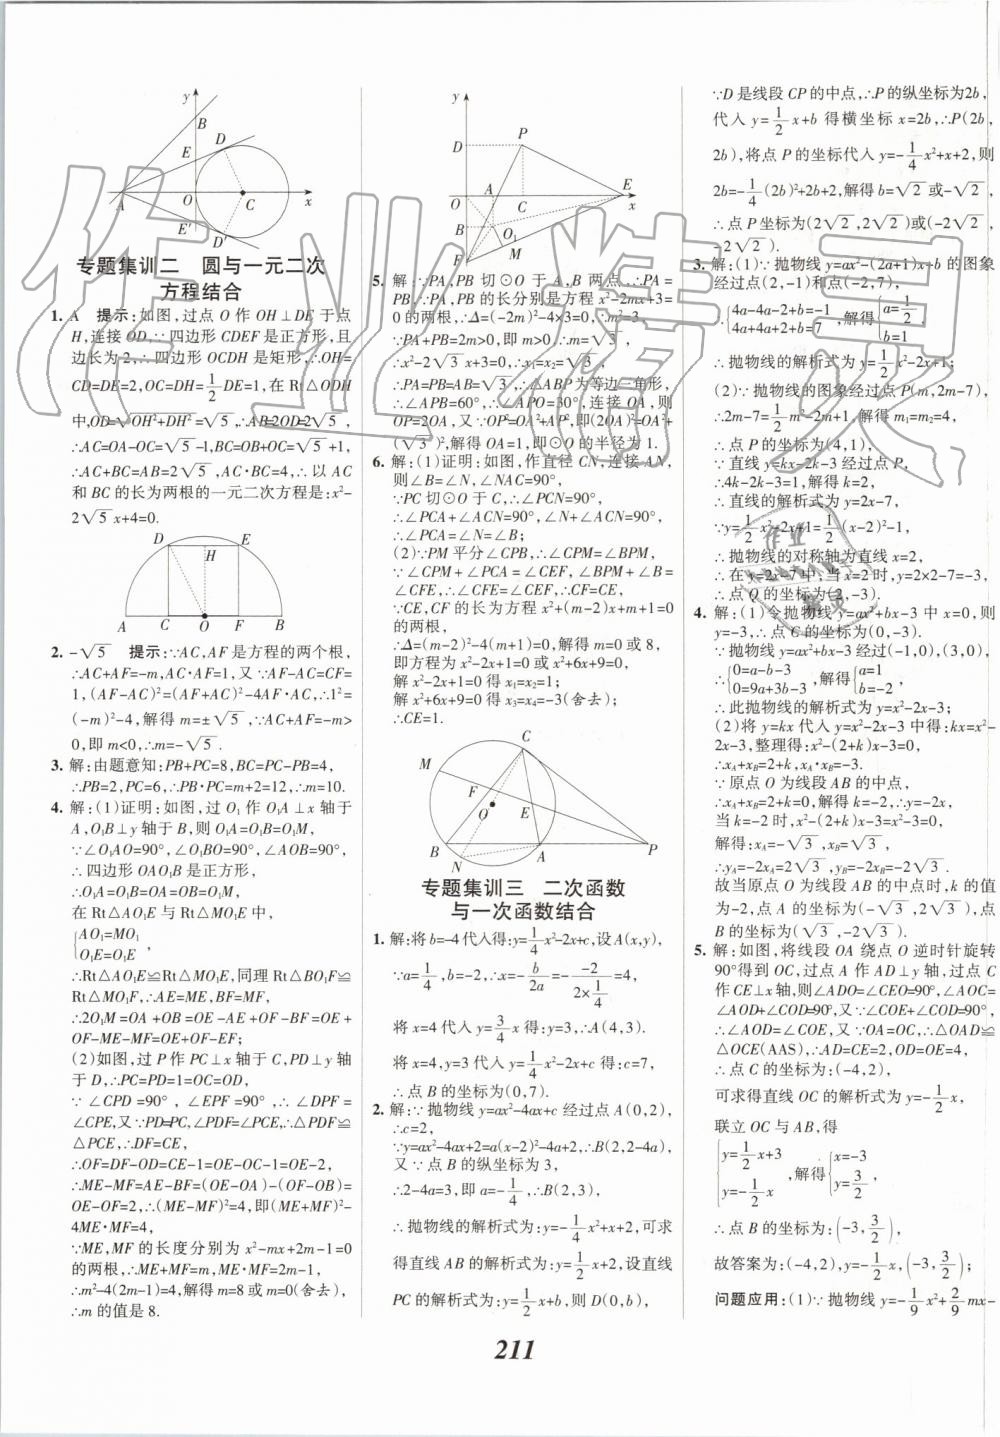 专题集训二 圆与一元二次
方程结合
1. A 提示:如图,过点 O 作 OH⊥DE 于点
H,连接 OD,∵四边形 CDEF 是正方形,且
边长为 2,∴四边形 OCDH 是矩形,∴OH=
CD=DE=2,OC=DH=1/2DE=1,在 Rt△ODH
中,OD=√OH²+DH²=√5,∴AB=2OD=2√5,
∴AC=OA-OC=√5-1,BC=OB+OC=√5+1,
∴AC+BC=AB=2√5,AC·BC=4,∴以 AC
和 BC 的长为两根的一元二次方程是:x²-
2√5x+4=0.
2. -√5 提示:∵AC,AF 是方程的两个根,
∴AC+AF=-m,AC·AF=1,又∵AF-AC=CF=
1,(AF-AC)²=(AF+AC)²-4AF·AC,∴1²=
(-m)²-4,解得 m=±√5,∵AC+AF=-m>
0,即 m<0,∴m=-√5.
3. 解:由题意知:PB+PC=8,BC=PC-PB=4,
∴PB=2,PC=6,∴PB·PC=m+2=12,∴m=10.
4. 解:(1)证明:如图,过 O₁ 作 O₁A⊥x 轴于
A,O₁B⊥y 轴于 B,则 O₁A=O₁B=O₁M,
∵∠O₁AO=90°,∠O₁BO=90°,∠AOB=90°,
∴四边形 OAO₁B 是正方形,
∴O₁A=O₁B=OA=OB=O₁M,
在 Rt△AO₁E 与 Rt△MO₁E 中,
{AO₁=MO₁
O₁E=O₁E,
∴Rt△AO₁E≌Rt△MO₁E,同理 Rt△BO₁F≌
Rt△MO₁F,∴AE=ME,BF=MF,
∴2O₁M=OA+OB=OE-AE+OF-BF=OE+
OF-ME-MF=OE+OF-EF;
(2)如图,过 P 作 PC⊥x 轴于 C,PD⊥y 轴
于 D,∴PC=PD=1=OC=OD,
∵∠CPD=90°,∠EPF=90°,∴∠DPF=
∠CPE,又∵PD=PC,∠PDF=∠PCE,∴△PDF≌
△PCE,∴DF=CE,
∴OF=DF-OD=CE-1=OE-OC-1=OE-2,
∴ME-MF=AE-BF=(OE-OA)-(OF-OB)=
OE-OF=2,∴(ME-MF)²=4,即(ME+MF)²-
4ME·MF=4,
∵ME,MF 的长度分别为 x²-mx+2m-1=0
的两根,∴ME+MF=m,ME·MF=2m-1,
∴m²-4(2m-1)=4,解得 m=8 或 m=0(舍去),
∴m 的值是 8.
5. 解:∵PA,PB 切⊙O 于 A,B 两点,∴PA=
PB,∵PA,PB 的长分别是方程 x²-2mx+3=
0 的两根,∴Δ=(-2m)²-4×3=0,∴m²=3,
∵PA+PB=2m>0,即 m>0,∴m=√3,
∴x²-2√3x+3=0,∴x₁=x₂=√3,
∴PA=PB=AB=√3,∴△ABP 为等边三角形,
∴∠APB=60°,∴∠APO=30°,连接 OA,则
OP=2OA,又∵OP²=OA²+AP²,即(2OA)²=OA²+
(√3)²,解得 OA=1,即⊙O 的半径为 1.
6. 解:(1)证明:如图,作直径 CN,连接 AN,
则∠B=∠N,∠NAC=90°,
∵PC 切⊙O 于 C,∴∠PCN=90°,
∴∠PCA+∠ACN=90°,∠N+∠ACN=90°,
∴∠PCA=∠N,∴∠PCA=∠B;
(2)∵PM 平分∠CPB,∴∠CPM=∠BPM,
∵∠CPM+∠PCA=∠CEF,∠BPM+∠B=
∠CFE,∴∠CFE=∠CEF,∴CF=CE,
∵CE,CF 的长为方程 x²+(m-2)x+m+1=0
的两根,
∴Δ=(m-2)²-4(m+1)=0,解得 m=0 或 8,
即方程为 x²-2x+1=0 或 x²+6x+9=0,
解 x²-2x+1=0 得 x₁=x₂=1,
解 x²+6x+9=0 得 x₃=x₄=-3(舍去);
∴CE=1.
专题集训三 二次函数
与一次函数结合
1. 解:将 b=-4 代入得:y=1/4x²-2x+c,设 A(x,y),
∵a=1/4,b=-2,∴x=-b/2a=-(-2)/(2×1/4)=4,
将 x=4 代入 y=3/4x 得:y=3,∴A(4,3).
将 x=4,y=3 代入 y=1/4x²-2x+c 得:c=7,
∴点 B 的坐标为(0,7).
2. 解:∵抛物线 y=ax²-4ax+c 经过点 A(0,2),
∴c=2,
∵y=ax²-4ax+2=a(x-2)²-4a+2,∴B(2,2-4a),
又∵点 B 的纵坐标为 3,
∴2-4a=3,即 a=-1/4,∴B(2,3),
∴抛物线的解析式为:y=-1/4x²+x+2,可求
得直线 AB 的解析式为:y=1/2x+2,设直线
PC 的解析式为:y=1/2x+b,则 D(0,b),
∵D 是线段 CP 的中点,∴P 的纵坐标为2b,
代入 y=1/2x+b 得横坐标 x=2b,∴P(2b,
2b),将点 P 的坐标代入 y=-1/4x²+x+2,则
2b=-1/4(2b)²+2b+2,解得 b=√2或-√2,
∴点 P 坐标为(2√2,2√2)或(-2√2,
-2√2).
3. 解:(1)∵抛物线 y=ax²-(2a+1)x+b 的图象
经过点(2,-1)和点(-2,7),
∴{4a-4a-2+b=-1
4a+4a+2+b=7,解得{a=1/2
b=1,
∴抛物线的解析式为 y=1/2x²-2x+1;
(2)∵抛物线的图象经过点 P(m,2m-7),
∴2m-7=1/2m²-2m+1,解得 m₁=m₂=4,
∴点 P 的坐标为(4,1),
∵直线 y=kx-2k-3 经过点 P,
∴4k-2k-3=1,解得 k=2,
∴直线的解析式为 y=2x-7,
∵y=1/2x²-2x+1=1/2(x-2)²-1,
∴抛物线的对称轴为直线 x=2,
∴在 y=2x-7 中,当 x=2 时,y=2×2-7=-3,
∴点 Q 的坐标为(2,-3).
4. 解:(1)令抛物线 y=ax²+bx-3 中 x=0,则
y=-3,∴点 C 的坐标为(0,-3).
∵抛物线 y=ax²+bx-3 经过(-1,0),(3,0),
∴{0=a-b-3
0=9a+3b-3,解得{a=1
b=-2,
∴此抛物线的解析式为 y=x²-2x-3;
(2)将 y=kx 代入 y=x²-2x-3 中得:kx=x²-
2x-3,整理得:x²-(2+k)x-3=0,
∴xA+xB=2+k,xA·xB=-3.
∵原点 O 为线段 AB 的中点,
∴xA+xB=2+k=0,解得 k=-2,∴y=-2x,
当 k=-2 时,x²-(2+k)x-3=x²-3=0,
解得:xA=-√3,xB=√3.
∴yA=-2xA=2√3,yB=-2xB=-2√3,
故当原点 O 为线段 AB 的中点时,k 的值
为-2,点 A 的坐标为(-√3,2√3),点
B 的坐标为(√3,-2√3).
5. 解:如图,将线段 OA 绕点 O 逆时针旋转
90°得到 OC,过点 A 作 AD⊥y 轴,过点 C
作 CE⊥x 轴,则∠ADO=∠CEO=90°,∠AOC=
∠AOD+∠COD=90°,又∵∠COE+∠COD=90°,
∴∠AOD=∠COE,又∵OA=OC,∴△OAD≌
△OCE(AAS),∴AD=CE=2,OD=OE=4,
∴点 C 的坐标为:(-4,2),
可求得直线 OC 的解析式为:y=-1/2x,
联立 OC 与 AB,得
{y=1/2x+3
y=-1/2x,解得{x=-3
y=3/2,
∴点 B 的坐标为:(-3,3/2),
故答案为:(-4,2),y=-1/2x,(-3,3/2);
问题应用:(1)∵抛物线 y=-1/9x²+2/9mx-
211